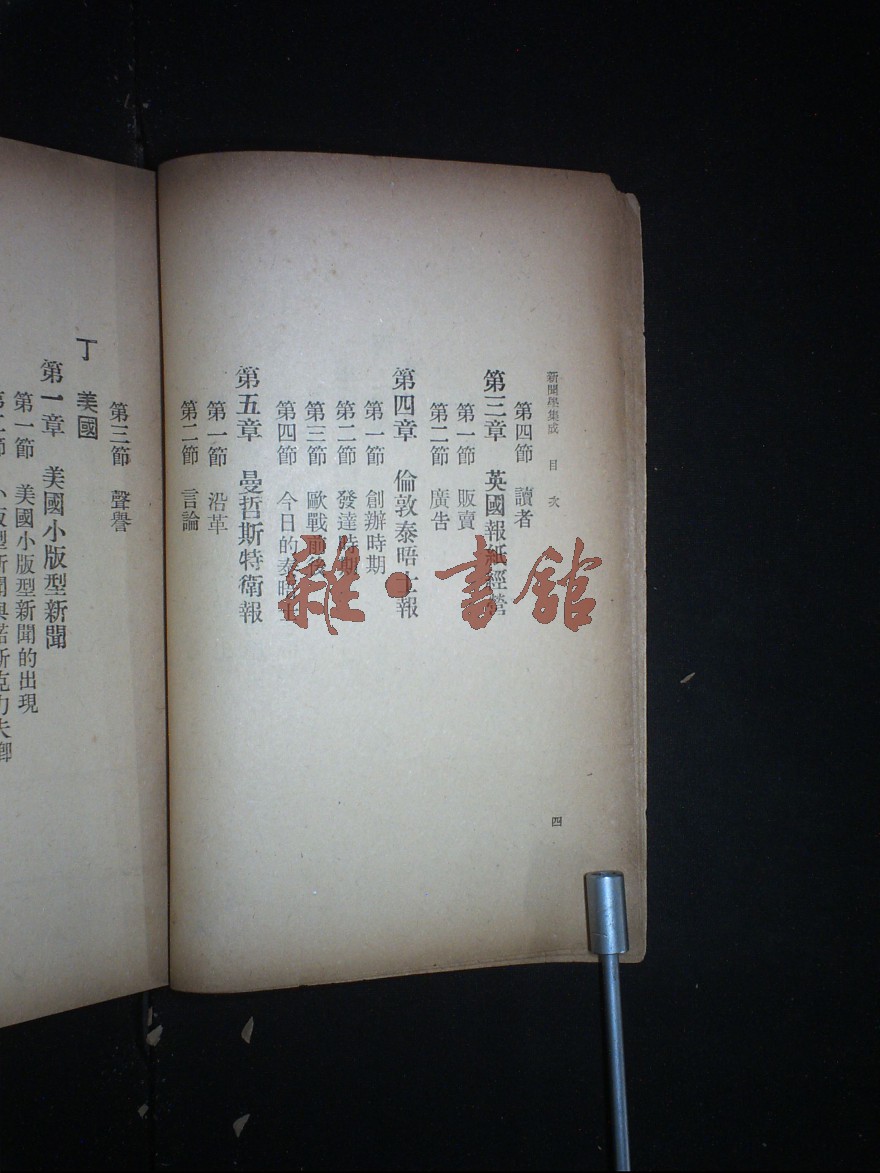 新聞學集成 目次
第四節 讀者
第三章 英國報紙經營
第一節 販賣
第二節 廣告
第四章 倫敦泰晤士報
第一節 創辦時期
第二節 發達時期
第三節 歐戰前後
第四節 今日的泰晤士
第五章 曼哲斯特衛報
第一節 沿革
第二節 言論
四
第三節 聲譽
丁 美國
第一章 美國小版型新聞
第一節 美國小版型新聞的出現
第二節 小版型新聞與諾斯克力夫鄉
雜·書館